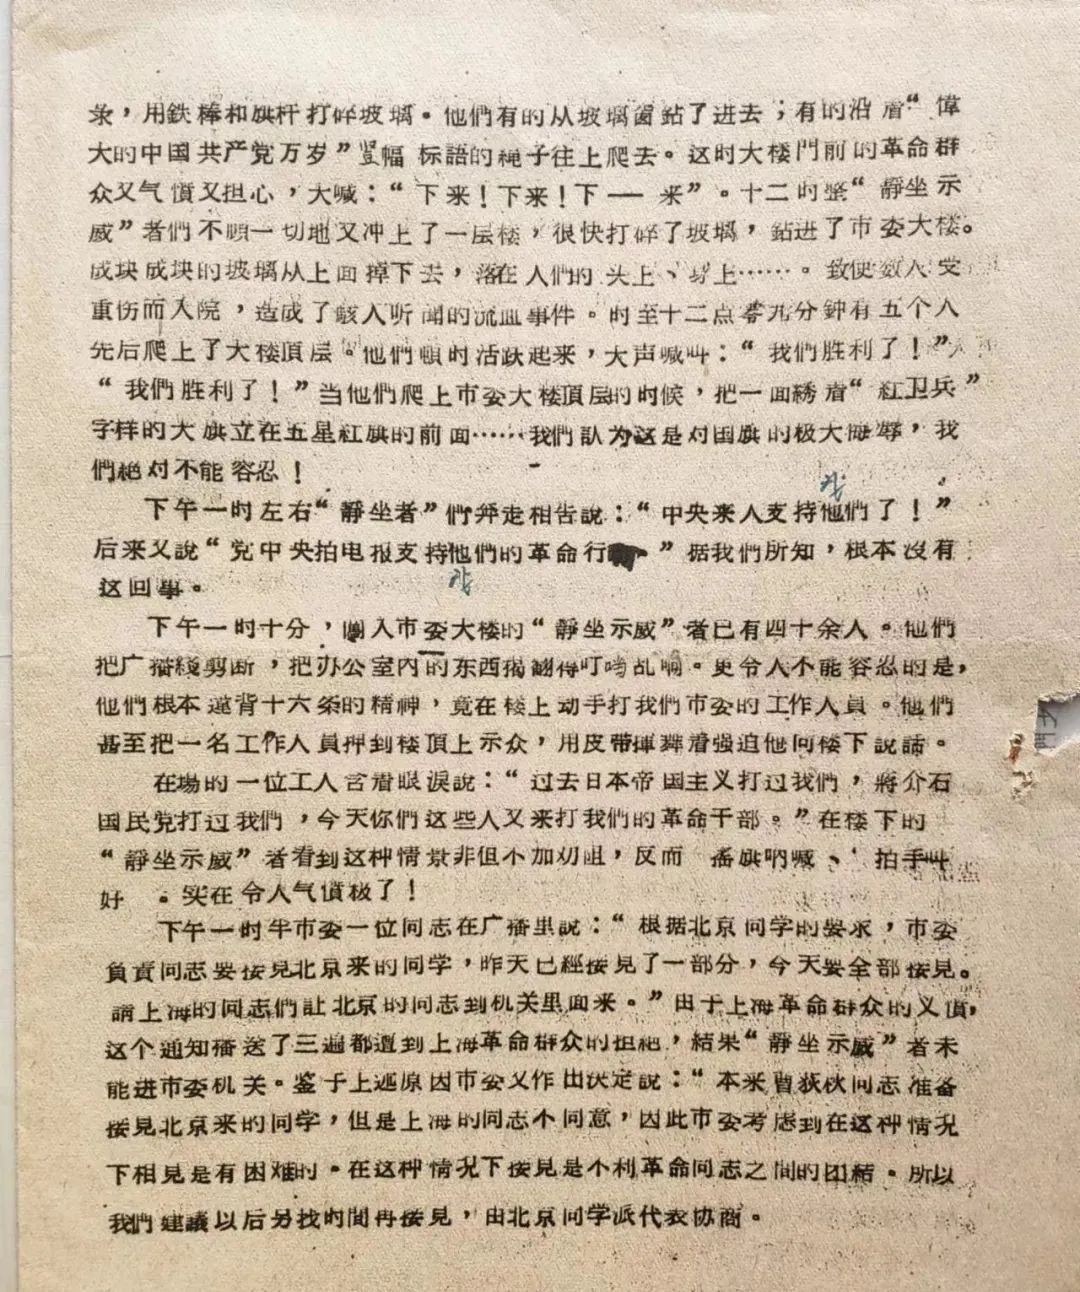 求，用鉄棒和旗杆打碎玻璃。他們有的从玻璃窗鉆了进去；有的沿着“偉
大的中国共产党万岁”竖幅标語的繩子往上爬去。这时大楼門前的革命群
众又气憤又担心，大喊：“下来！下来！下——来”。十二时整“靜坐示
威”者們不顧一切地又冲上了一层楼，很快打碎了玻璃，鉆进了市委大楼。
成块成块的玻璃从上面掉下去，落在人們的头上、身上……。致使数人受
重伤而入院，造成了駭人听聞的流血事件。时至十二点零九分鈡有五个人
先后爬上了大楼頂层。他們頓时活跃起来，大声喊叫：“我們胜利了！”
“我們胜利了！”当他們爬上市委大楼頂层的时候，把一面綉着“紅卫兵”
字样的大旗立在五星紅旗的前面……我們認为这是对国旗的极大侮辱，我
們絶对不能容忍！
下午一时左右“靜坐者”們奔走相告說：“中央来人支持他們了！”
我
后来又說“党中央拍电报支持他們的革命行”据我們所知，根本沒有
我
这回事。
下午一时十分，闖入市委大楼的“靜坐示威”者已有四十余人。他們
把广播綫剪断，把办公室內的东西搗翻得叮噹乱响。更令人不能容忍的是，
他們根本違背十六条的精神，竟在楼上动手打我們市委的工作人員。他們
甚至把一名工作人員押到楼頂上示众，用皮帶揮舞着强迫他向楼下說話。
在場的一位工人含着眼淚說：“过去日本帝国主义打过我們，蔣介石
国民党打过我們，今天你們这些人又来打我們的革命干部。”在楼下的
“靜坐示威”者看到这种情景非但不加劝阻，反而搖旗吶喊、拍手叫
好。实在令人气憤极了！
下午一时半市委一位同志在广播里說：“根据北京同学的要求，市委
負責同志要接見北京来的同学，昨天已經接見了一部分，今天要全部接見。
請上海的同志們让北京的同志到机关里面来。”由于上海革命群众的义憤，
这个通知播送了三遍都遭到上海革命群众的拒絶，結果“靜坐示威”者未
能进市委机关。鉴于上述原因市委又作出决定說：“本来曹荻秋同志准备
接見北京来的同学，但是上海的同志不同意，因此市委考虑到在这种情况
下相見是有困难的。在这种情况下接見是不利革命同志之間的团結。所以
我們建議以后另找时間再接見，由北京同学派代表协商。
們